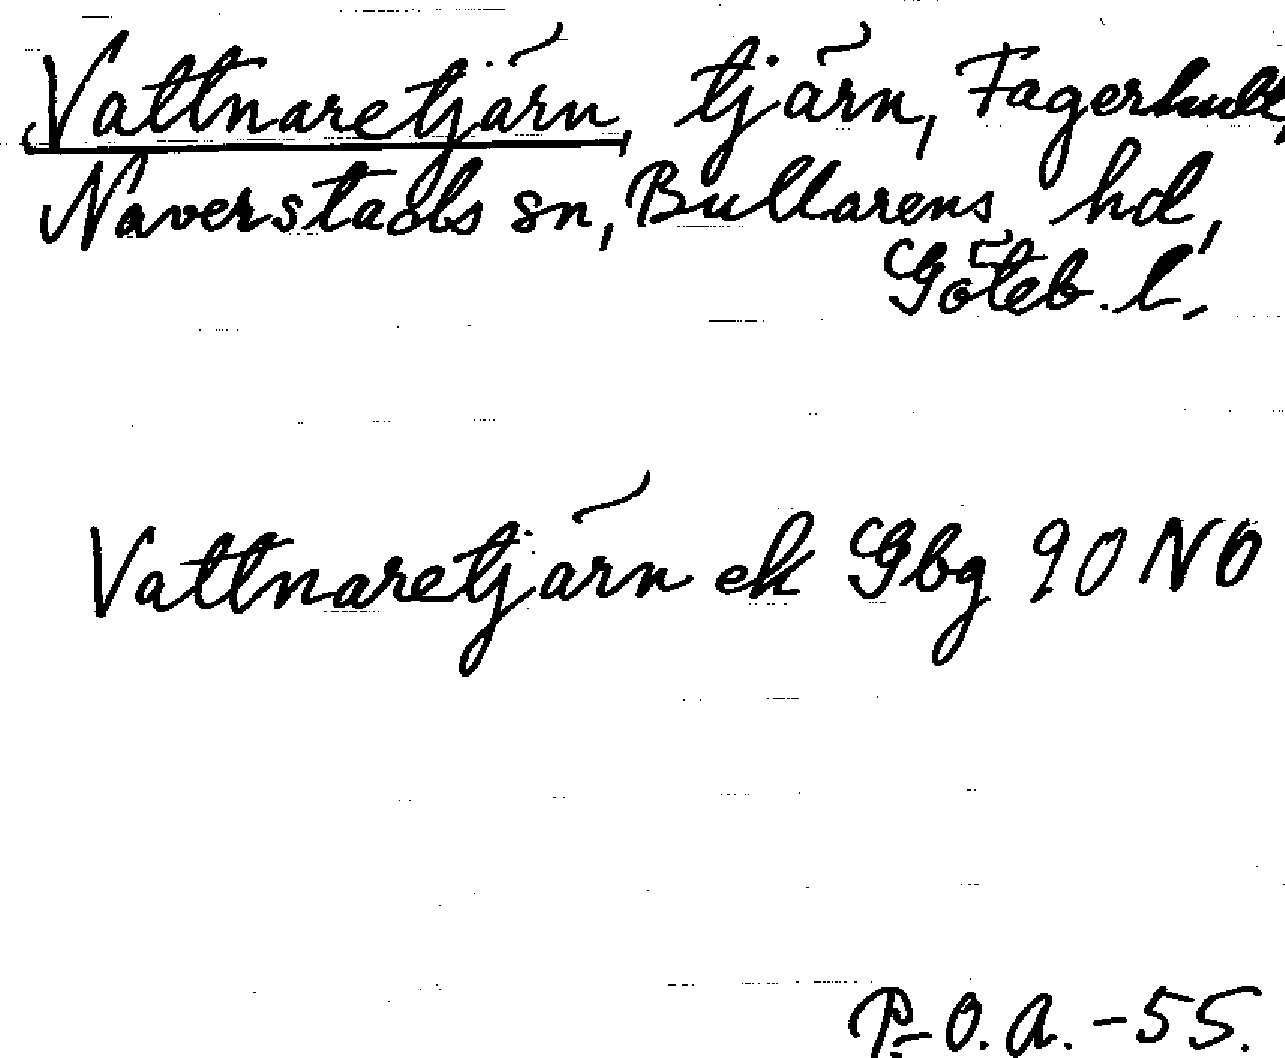 Vattnaretjärn, tjärn, Fagerhult,
Naverstads sn, Bullarens hd,
Göteb. l.
Vattnaretjärn ek Gbg 90 NO
P-O.A. -55.